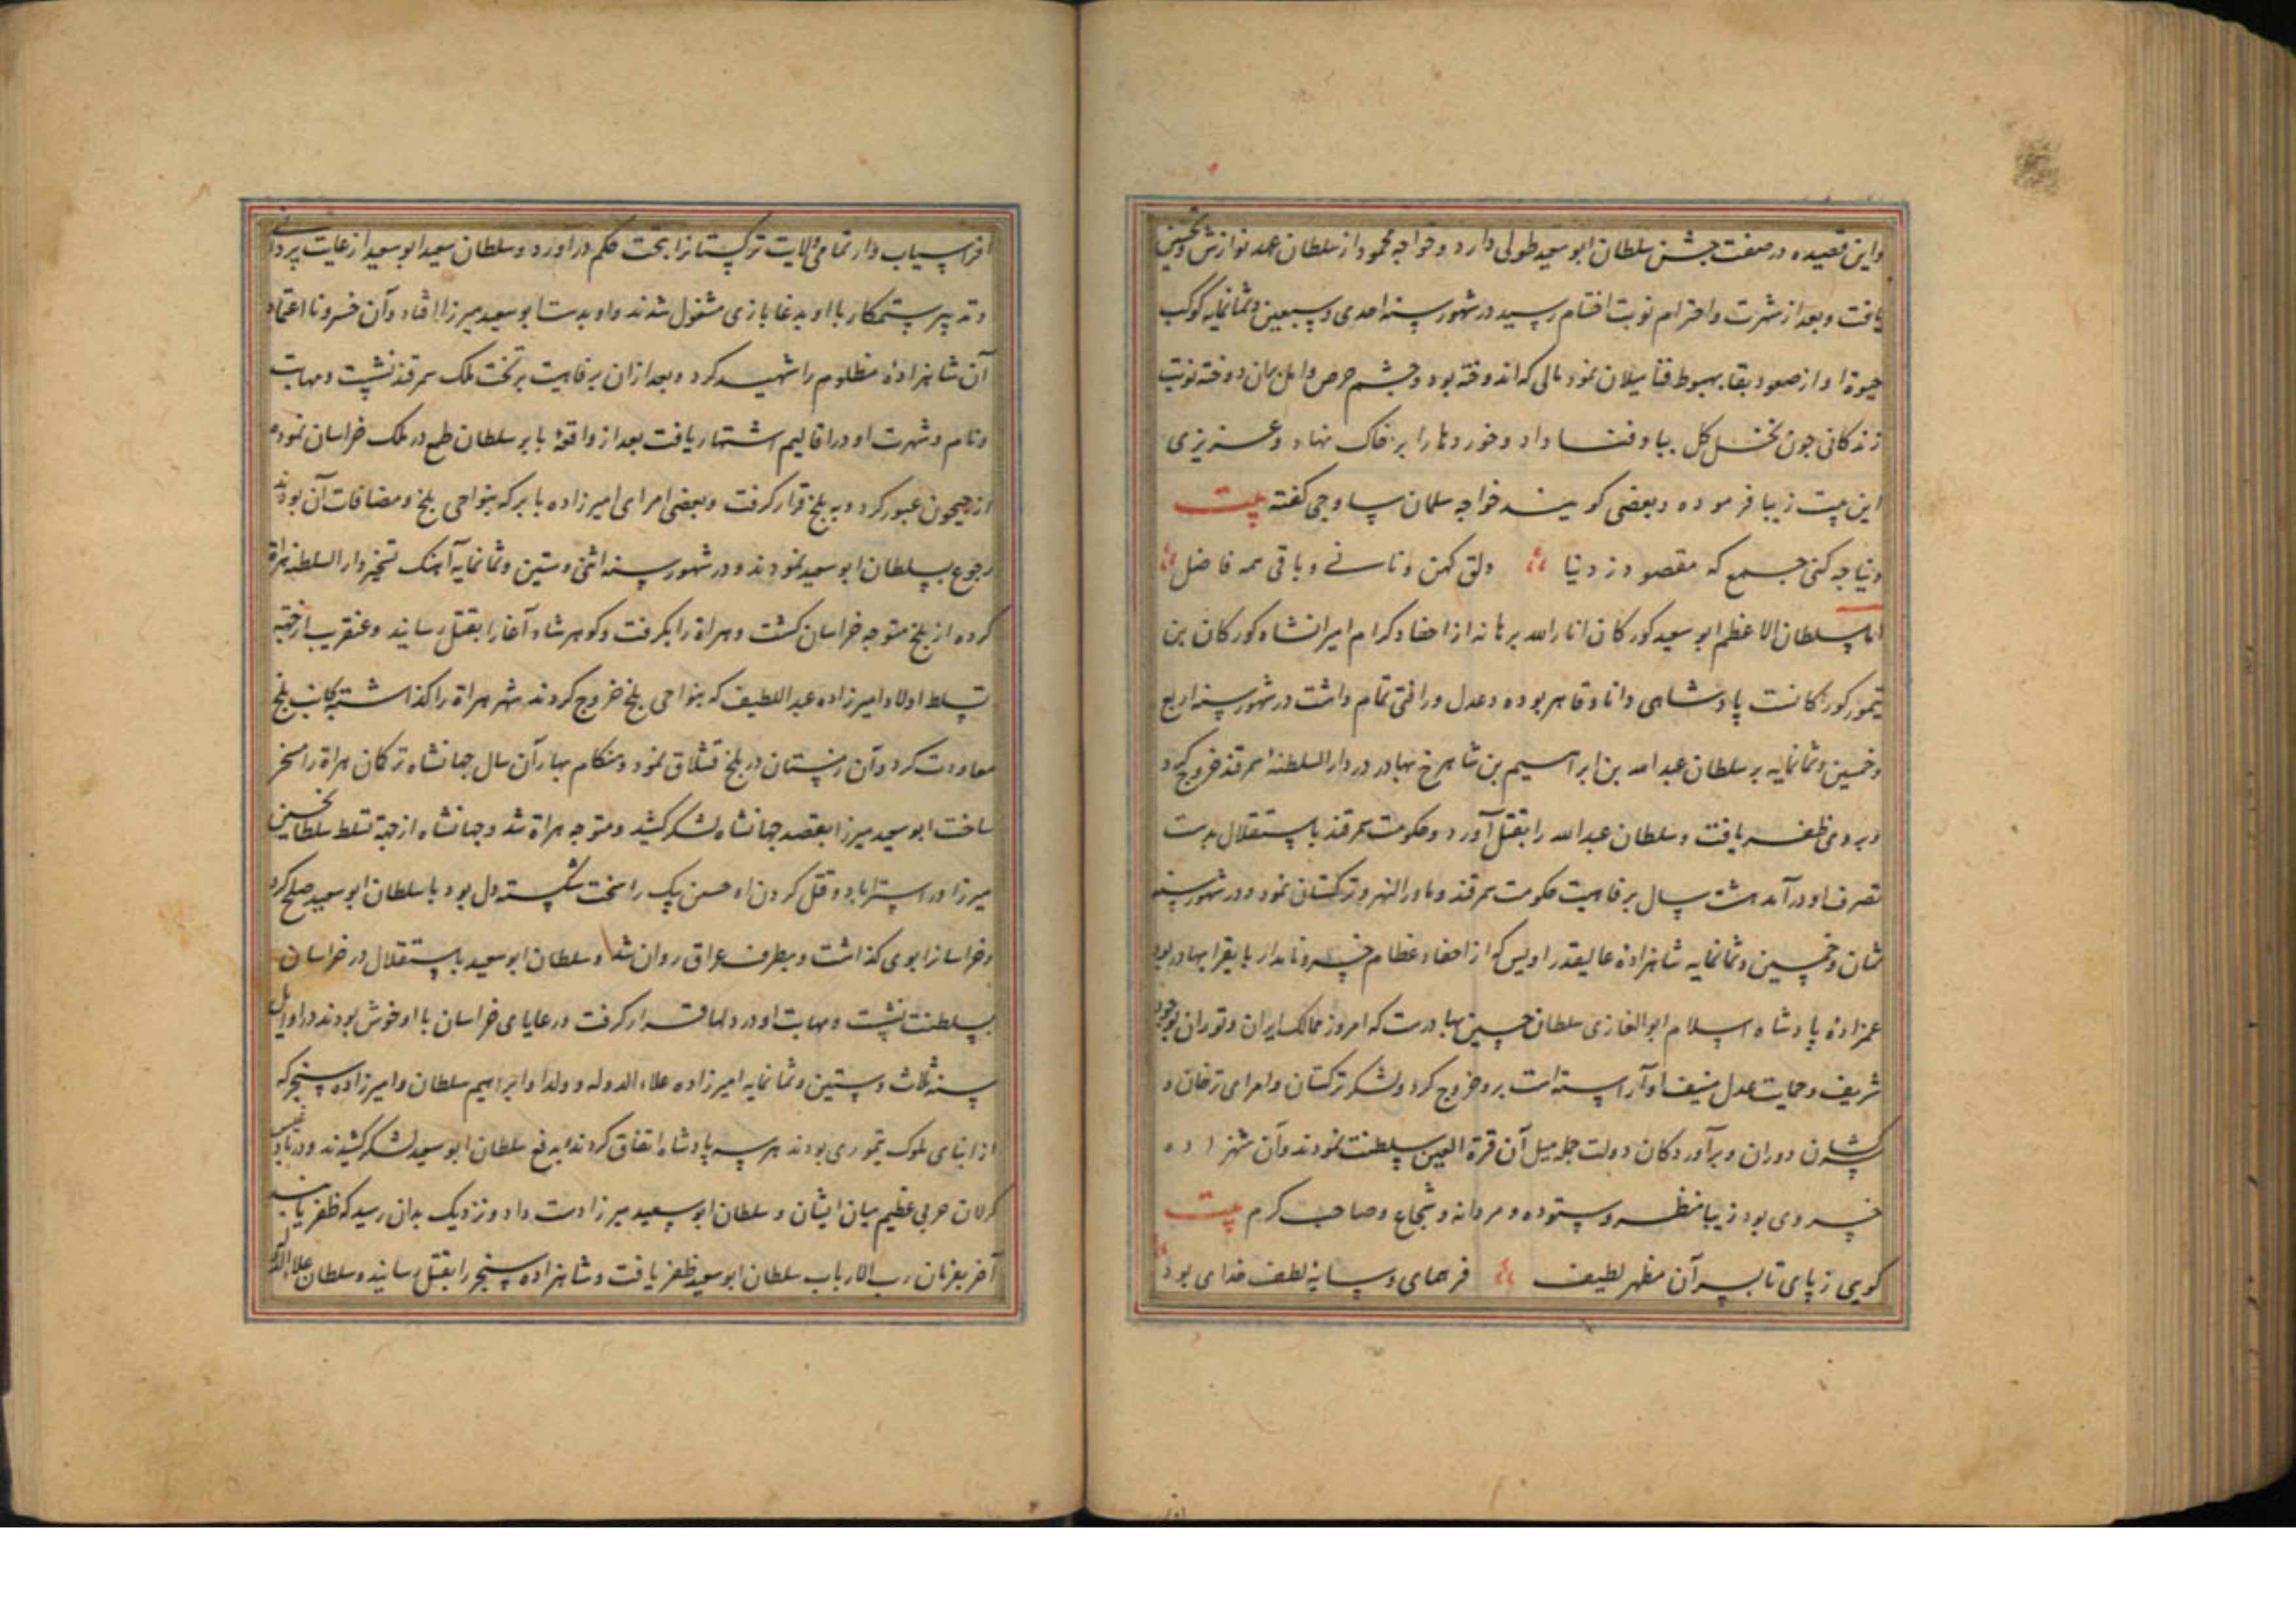 واین قصیده در صفت جشن سلطان ابو سعید طولی دارد و خواجه محمود از سلطان عهد نوازش و تحسین
یافت و بعد از شهرت و احترام نوبت اختتام رسید در شهور سنه احدی و سبعین و ثمانمایه کوکب
حیوة او از صعود بقا بهبوط فنا میلان نمود مالی که اندوخته بود و چشم حرص و امل بدان دوخته نوبت
زندکانی چون نخل کل بباد فنا داد و خورده‌ها را بر خاک نهاد و عزیزی
این بیت زیبا فرموده و بعضی کویند خواجه سلمان ساوجی کفته بیت
دنیا چه کنی جمع که مقصود ز دنیا دلق کهن و نانی و باقی همه فاضل
اما سلطان الاعظم ابو سعید کورکان انار الله برهانه از احفاد کرام امیرانشاه کورکان بن
تیمور کورکانست پادشاهی دانا و قاهر بوده و عدل و رافتی تمام داشت در شهور سنه اربع
و خمسین و ثمانمایه بر سلطان عبد الله بن ابراهیم بن شاهرخ بهادر در دار السلطنهٔ سمرقند خروج کرد
و بر وی ظفر یافت و سلطان عبد الله را بقتل آورد و حکومت سمرقند باستقلال بدست
تصرف او درآمد هشت سال برفاهیت حکومت سمرقند و ماورالنهر و ترکستان نمود و در شهور سنه
ثمان و خمسین و ثمانمایه شاهزادهٔ عالیقدر اویس که از احفاد عظام خسرو نامدار بایقرا بهادر بود
عمزادهٔ پادشاه اسلام ابو الغازی سلطان حسین بهادرست که امروز ممالک ایران و توران بوجود
شریف و حمایت عدل منیف او آراسته است برو خروج کرد و لشکر ترکستان و امرای ترخان و
سرکشان دوران و برآوردکان دولت جمله میل آن قرة العین سلطنت نمودند و آن شهزاده
خسروی بود زیبا منظر و ستوده و مردانه و شجاع و صاحب کرم بیت
کویی ز پای تا بسر آن مظهر لطیف فر همای و سایهٔ لطف خدای بود
افراسیاب وار تمامی ولایت ترکستانرا بتحت حکم دراورد و سلطان سعید ابو سعید از غایت پردانی
و تدبیر ستمکار با او بدغا بازی مشغول شدند و او بدست ابو سعید میرزا افتاد و آن خسرو نا اعتماد
آن شاهزادهٔ مظلوم را شهید کرد و بعد ازان برفاهیت بر تخت ملک سمرقند نشست و مهابت
و نام و شهرت او در اقالیم اشتهار یافت بعد از واقعهٔ بابر سلطان طمع در ملک خراسان نموده
از جیحون عبور کرد و به بلخ قرار کرفت و بعضی امرای امیرزاده بابر که بنواحی بلخ و مضافات آن بودند
رجوع بسلطان ابو سعید نمودند و در شهور سنه اثنی و ستین و ثمانمایه آهنک تسخیر دار السلطنه هراة
کرده از بلخ متوجه خراسان کشت و هراة را بکرفت و کوهرشاد آغا را بقتل رسانید و عنقریب از جهته
تسلط اولاد امیرزاده عبد اللطیف که بنواحی بلخ خروج کردند شهر هراة را کذاشته بجانب بلخ
معاودت کرد و آن زمستان در بلخ قشلاق نمود و هنکام بهار آن سال جهانشاه ترکان هراة را مسخر
ساخت ابو سعید میرزا بقصد جهانشاه لشکر کشید و متوجه هراة شد و جهانشاه از جهة تسلط سلطان حسین
میرزا در استراباد و قتل کردن او حسن بیک را سخت شکسته دل بود با سلطان ابو سعید صلح کرد
و خراسانرا بوی کذاشت و بطرف عراق روان شد و سلطان ابو سعید باستقلال در خراسان
بسلطنت نشست و مهابت او در دلها قرار کرفت و رعایای خراسان با او خوش بودند در اوایل
سنه ثلاث و ستین و ثمانمایه امیرزاده علاء الدوله و ولد او ابراهیم سلطان و امیرزاده سنجر که
از ابنای ملوک تیموری بودند هر سه پادشاه اتفاق کردند بدفع سلطان ابو سعید لشکر کشیدند و در بادغیس
کرلان حربی عظیم میان ایشان و سلطان ابو سعید میرزا دست داد و نزدیک بدان رسید که ظفر یابند
آخر بفرمان رب الارباب سلطان ابو سعید ظفر یافت و شاهزاده سنجر را بقتل رسانید و سلطان علاء الدوله